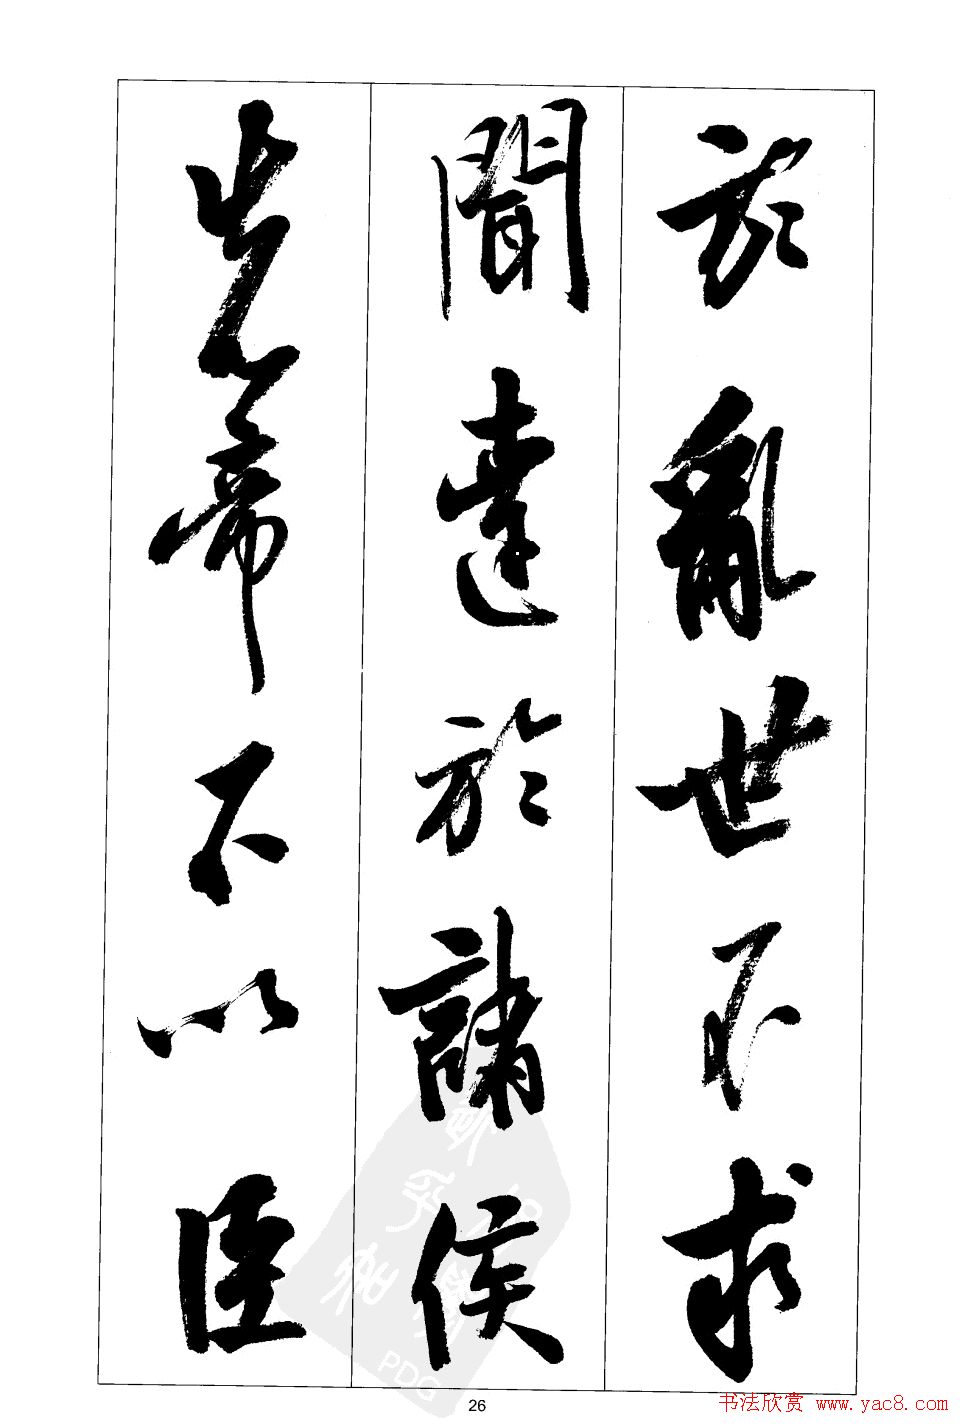 於亂世不求
聞達於諸侯
先帝不以臣
26
书法欣赏 www.yac8.com
PDG